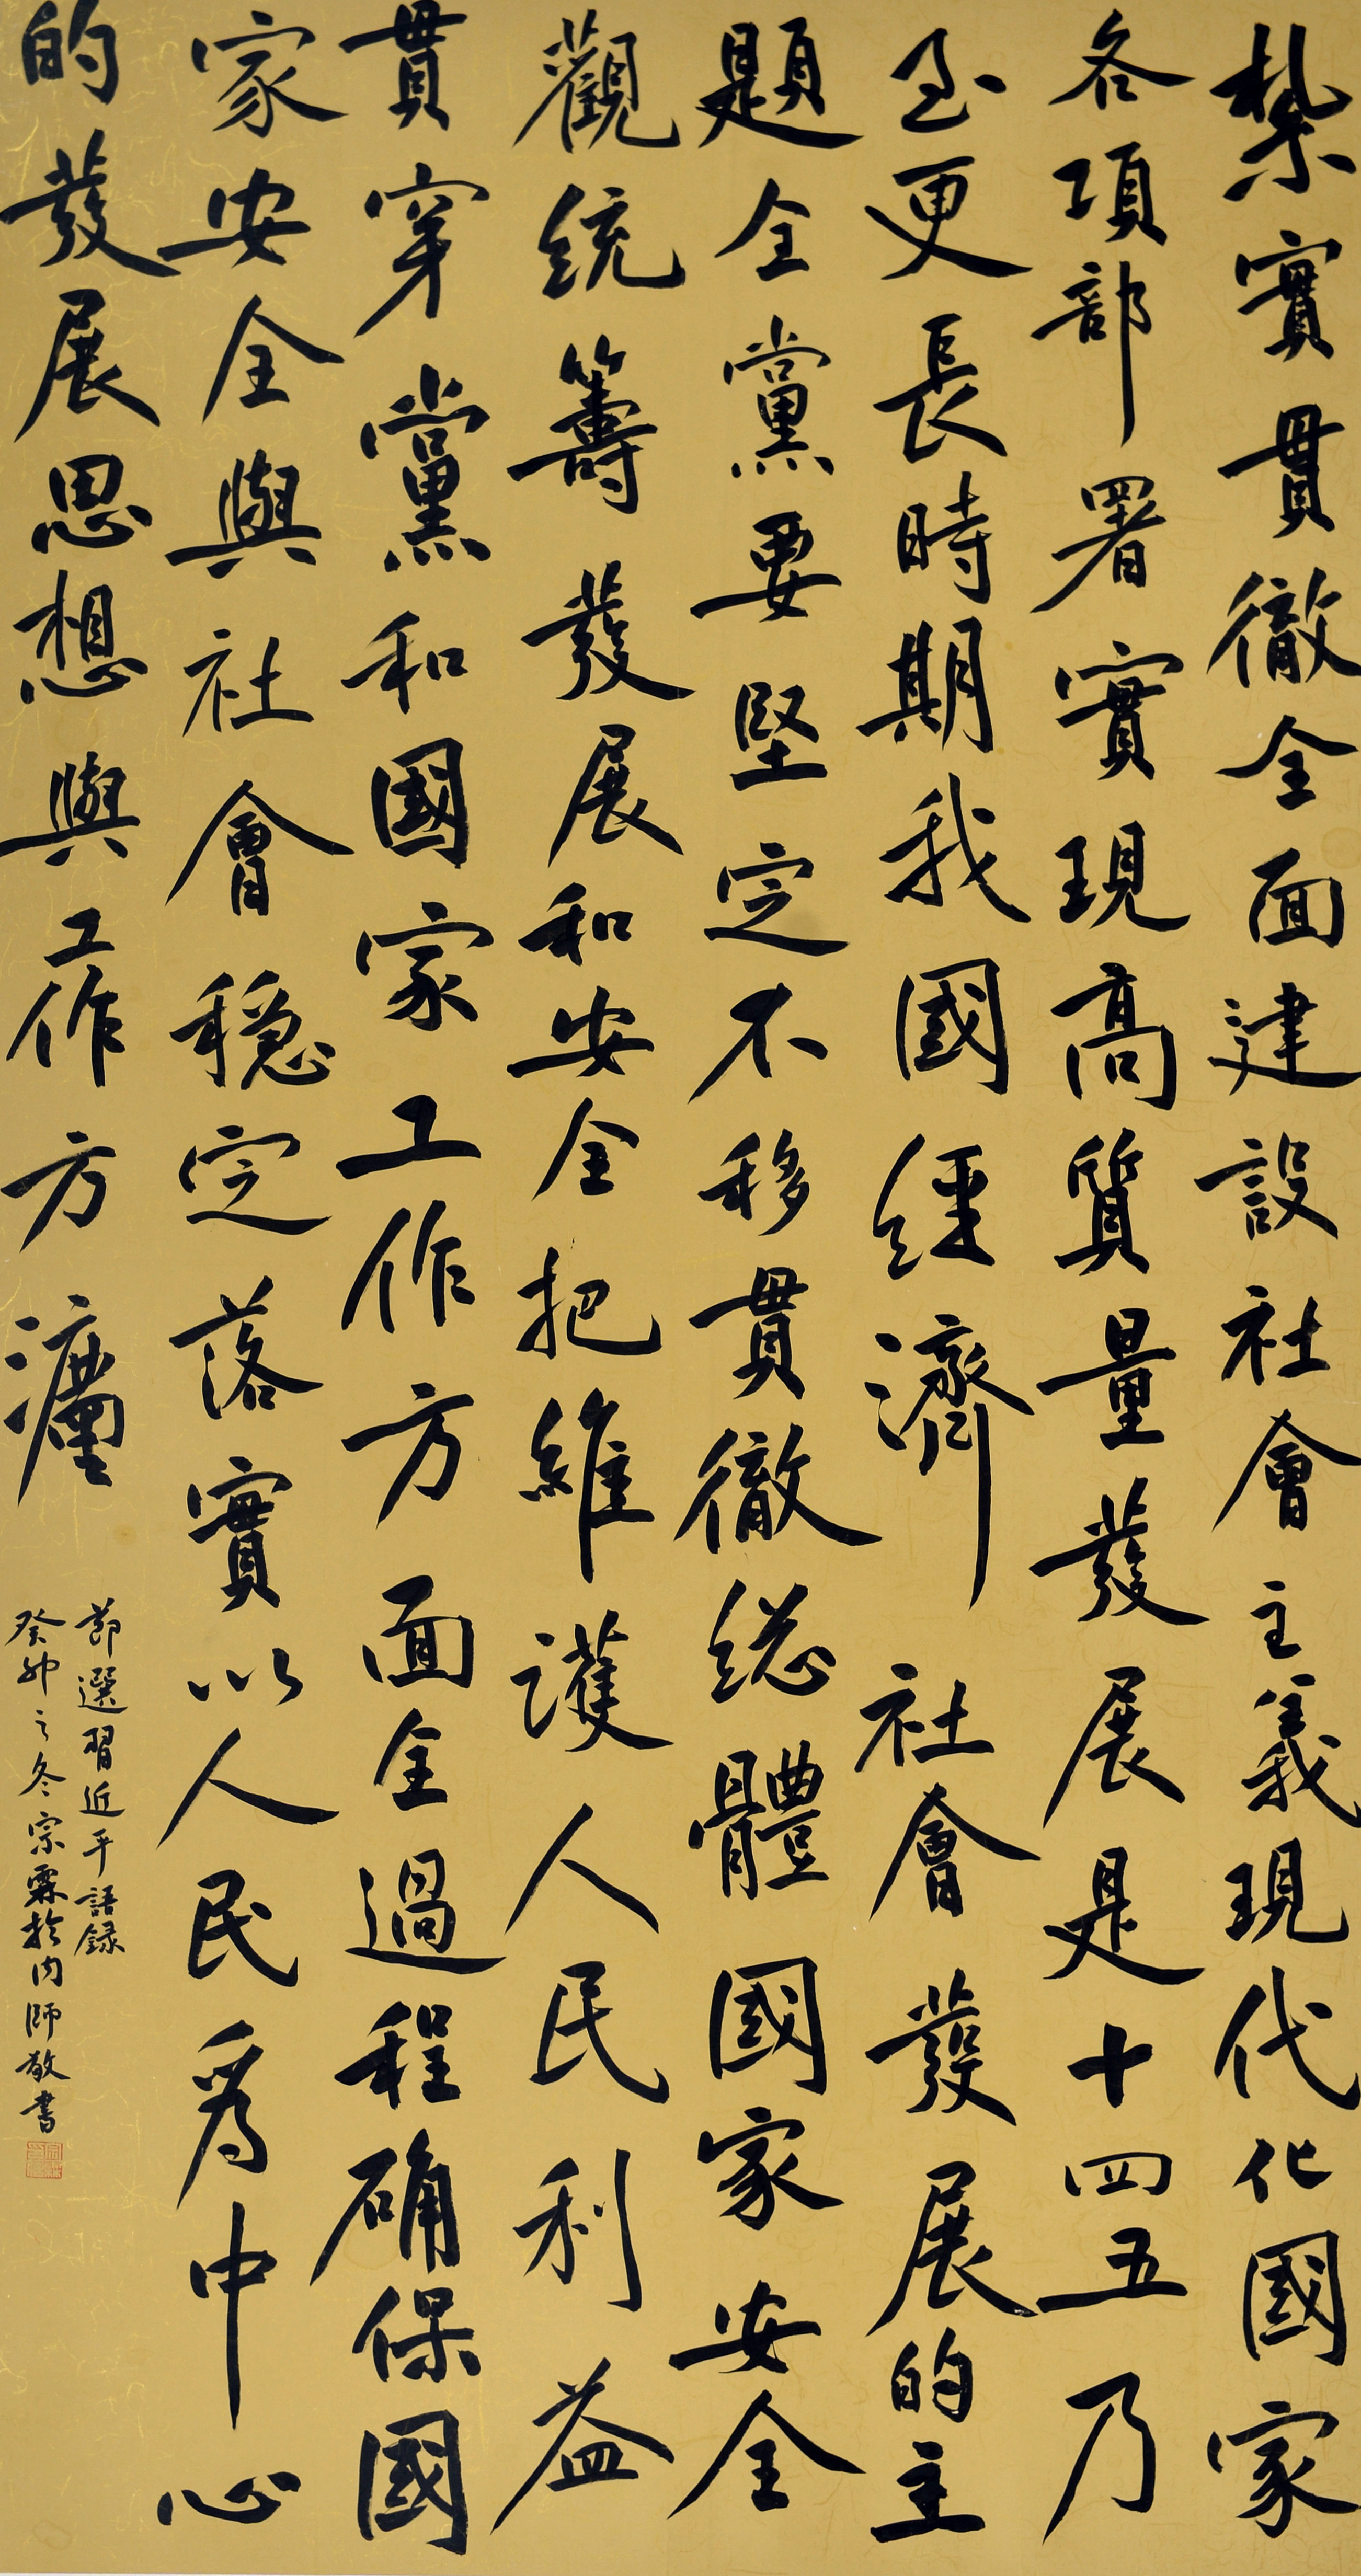 紮實貫徹全面建設社會主義現代化國家
各項部署實現高質量發展是十四五乃
至更長時期我國經濟社會發展的主
題全黨要堅定不移貫徹總體國家安全
觀統籌發展和安全把維護人民利益
貫穿黨和國家工作方面全過程確保國
家安全與社會穩定落實以人民為中心
的發展思想與工作方
節選習近平語録
癸卯之冬宗霖於內師敬書